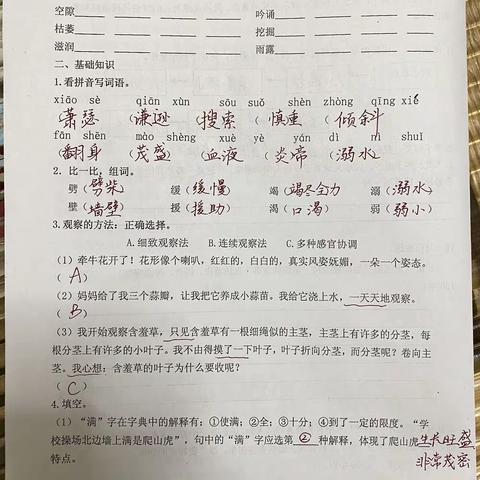 空隙 吟诵
枯萎 挖掘
滋润 雨露
二、基础知识
1.看拼音写词语。
xiāo sè qiān xùn sōu suǒ shèn zhòng qīng xié
(萧瑟) (谦逊) (搜索) (慎重) (倾斜)
fān shēn mào shèng xuè yè yán dì nì shuǐ
(翻身) (茂盛) (血液) (炎帝) (溺水)
2.比一比,组词。
劈(劈柴) 缓(缓慢) 竭(竭尽全力) 溺(溺水)
壁(墙壁) 援(援助) 渴(口渴) 弱(弱小)
3.观察的方法:正确选择。
A.细致观察法 B.连续观察法 C.多种感官协调
(1)牵牛花开了!花形像个喇叭,红红的,白白的,真实风姿妩媚,一朵一个姿态。
(A)
(2)妈妈给了我三个蒜瓣,让我把它养成小蒜苗。我给它浇上水,一天天地观察。
(B)
(3)我开始观察含羞草,只见含羞草有一根细绳似的主茎,主茎上有许多的分茎,每
根分茎上有许多的小叶子。我不由得摸了一下叶子,叶子折向分茎,而分茎呢?卷向主
茎。我心想:含羞草的叶子为什么要收呢?
(C)
4.填空。
(1)“满”字在字典中的解释有:①使满;②全;③十分;④到了一定的限度。“学
校操场北边墙上满是爬山虎”,句中的“满”字应选第②种解释,体现了爬山虎生长旺盛
特点。 非常茂密